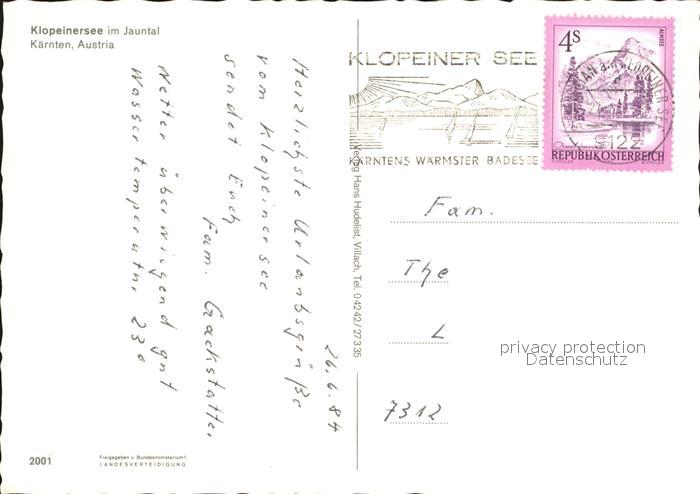 Klopeinersee im Jauntal
Kärnten, Austria
26.6.84
Herzlichste Urlaubsgrüße
vom Klopeinersee
sendet Euch
Fam. Gackstatter
Wetter überwiegend gut
Wassertemperatur 23°
2001
Freigegeben v. Bundesministerium f.
LANDESVERTEIDIGUNG
Verlag Hans Hudelist, Villach, Tel. 04242/27335
KLOPEINER SEE
KÄRNTENS WÄRMSTER BADESEE
4S
ALMSEE
KLOPEINER SEE
9122
REPUBLIK ÖSTERREICH
Fam.
The
L
7312
privacy protection
Datenschutz